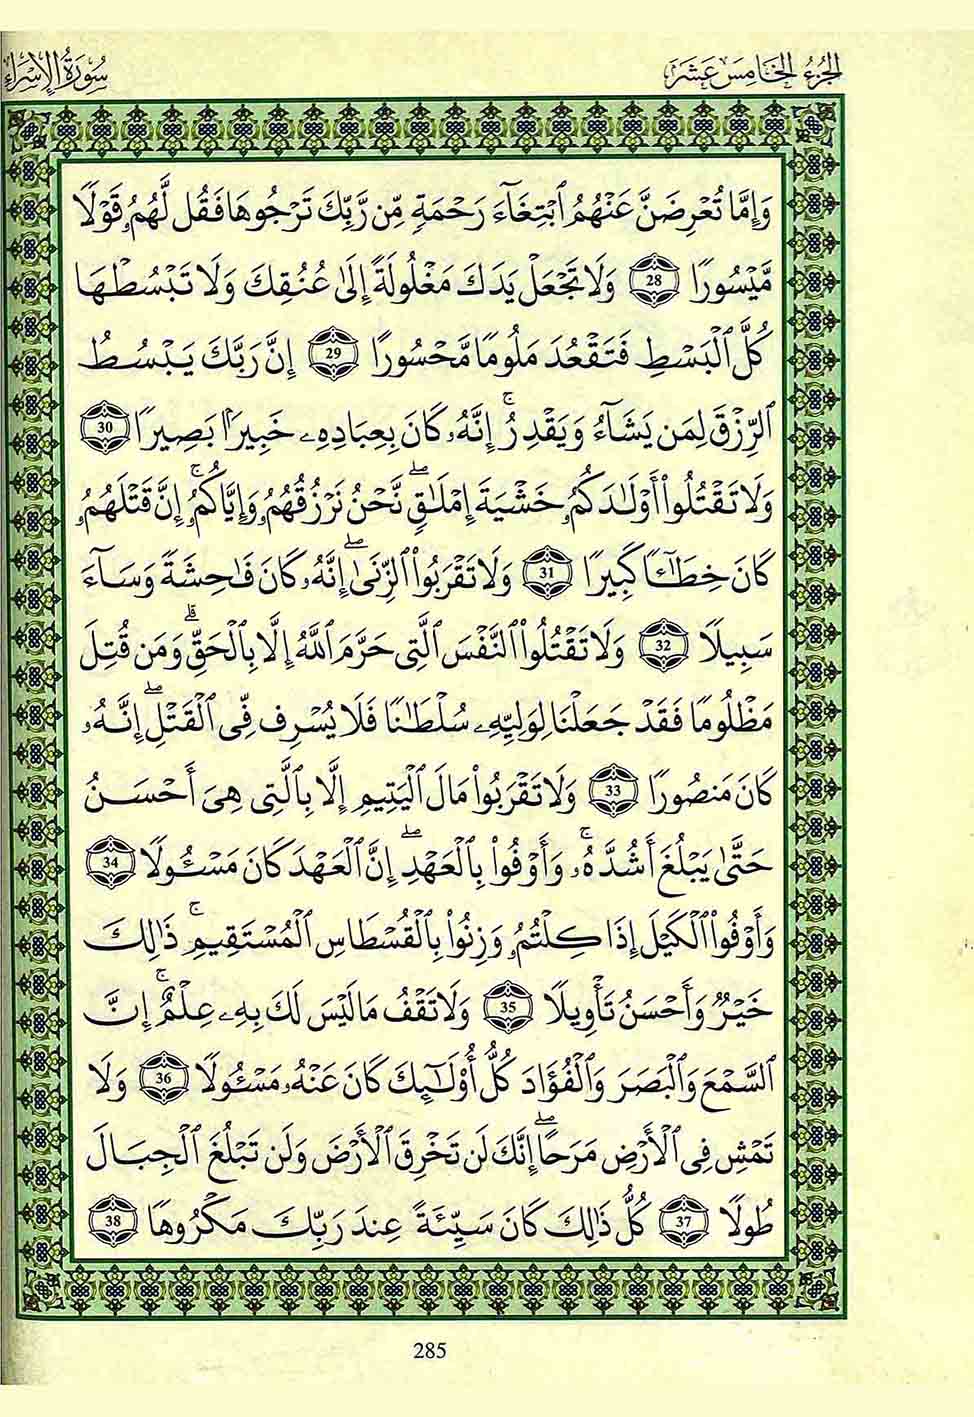 الجُزْءُ الخَامِسَ عَشَرَ
سُورَةُ الإِسْرَاءِ
وَإِمَّا تُعْرِضَنَّ عَنْهُمُ ٱبْتِغَآءَ رَحْمَةٍ مِّن رَّبِّكَ تَرْجُوهَا فَقُل لَّهُمُۥ قَوْلًا
مَّيْسُورًا 28 وَلَا تَجْعَلْ يَدَكَ مَغْلُولَةً إِلَىٰ عُنُقِكَ وَلَا تَبْسُطْهَا
كُلَّ ٱلْبَسْطِ فَتَقْعُدَ مَلُومًا مَّحْسُورًا 29 إِنَّ رَبَّكَ يَبْسُطُ
ٱلرِّزْقَ لِمَن يَشَآءُ وَيَقْدِرُ ۚ إِنَّهُۥ كَانَ بِعِبَادِهِۦ خَبِيرًۢا بَصِيرًا 30
وَلَا تَقْتُلُوٓا۟ أَوْلَـٰدَكُمُۥ خَشْيَةَ إِمْلَـٰقٍ ۖ نَّحْنُ نَرْزُقُهُمُۥ وَإِيَّاكُمُۥ ۚ إِنَّ قَتْلَهُمُۥ
كَانَ خِطَـآءً كَبِيرًا 31 وَلَا تَقْرَبُوا۟ ٱلزِّنَىٰٓ ۖ إِنَّهُۥ كَانَ فَـٰحِشَةً وَسَآءَ
سَبِيلًا 32 وَلَا تَقْتُلُوا۟ ٱلنَّفْسَ ٱلَّتِى حَرَّمَ ٱللَّهُ إِلَّا بِٱلْحَقِّ ۗ وَمَن قُتِلَ
مَظْلُومًا فَقَدْ جَعَلْنَا لِوَلِيِّهِۦ سُلْطَـٰنًا فَلَا يُسْرِف فِّى ٱلْقَتْلِ ۖ إِنَّهُۥ
كَانَ مَنصُورًا 33 وَلَا تَقْرَبُوا۟ مَالَ ٱلْيَتِيمِ إِلَّا بِٱلَّتِى هِىَ أَحْسَنُ
حَتَّىٰ يَبْلُغَ أَشُدَّهُۥ ۚ وَأَوْفُوا۟ بِٱلْعَهْدِ ۖ إِنَّ ٱلْعَهْدَ كَانَ مَسْـُٔولًا 34
وَأَوْفُوا۟ ٱلْكَيْلَ إِذَا كِلْتُمُۥ وَزِنُوا۟ بِٱلْقُسْطَاسِ ٱلْمُسْتَقِيمِ ۚ ذَٰلِكَ
خَيْرٌ وَأَحْسَنُ تَأْوِيلًا 35 وَلَا تَقْفُ مَا لَيْسَ لَكَ بِهِۦ عِلْمٌ ۚ إِنَّ
ٱلسَّمْعَ وَٱلْبَصَرَ وَٱلْفُؤَادَ كُلُّ أُو۟لَـٰٓئِكَ كَانَ عَنْهُۥ مَسْـُٔولًا 36 وَلَا
تَمْشِ فِى ٱلْأَرْضِ مَرَحًا ۖ إِنَّكَ لَن تَخْرِقَ ٱلْأَرْضَ وَلَن تَبْلُغَ ٱلْجِبَالَ
طُولًا 37 كُلُّ ذَٰلِكَ كَانَ سَيِّئَةً عِندَ رَبِّكَ مَكْرُوهًا 38
285